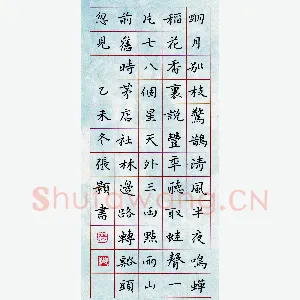 明月別枝驚鵲清風半夜鳴蟬
稻花香裏說豐年聽取蛙聲一
片七八個星天外三兩點雨山
前舊時茅店社林邊路轉谿頭
忽見
乙未冬張書
Shufawang.CN